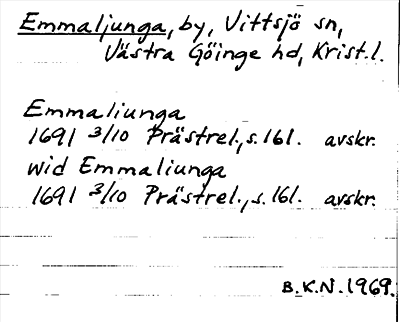 Emmaljunga, by, Vittsjö sn,
Västra Göinge hd, Krist.l.
Emmaliunga
1691 3/10 Prästrel., s. 161. avskr.
wid Emmaliunga
1691 3/10 Prästrel., s. 161. avskr.
B.K.N. 1969.